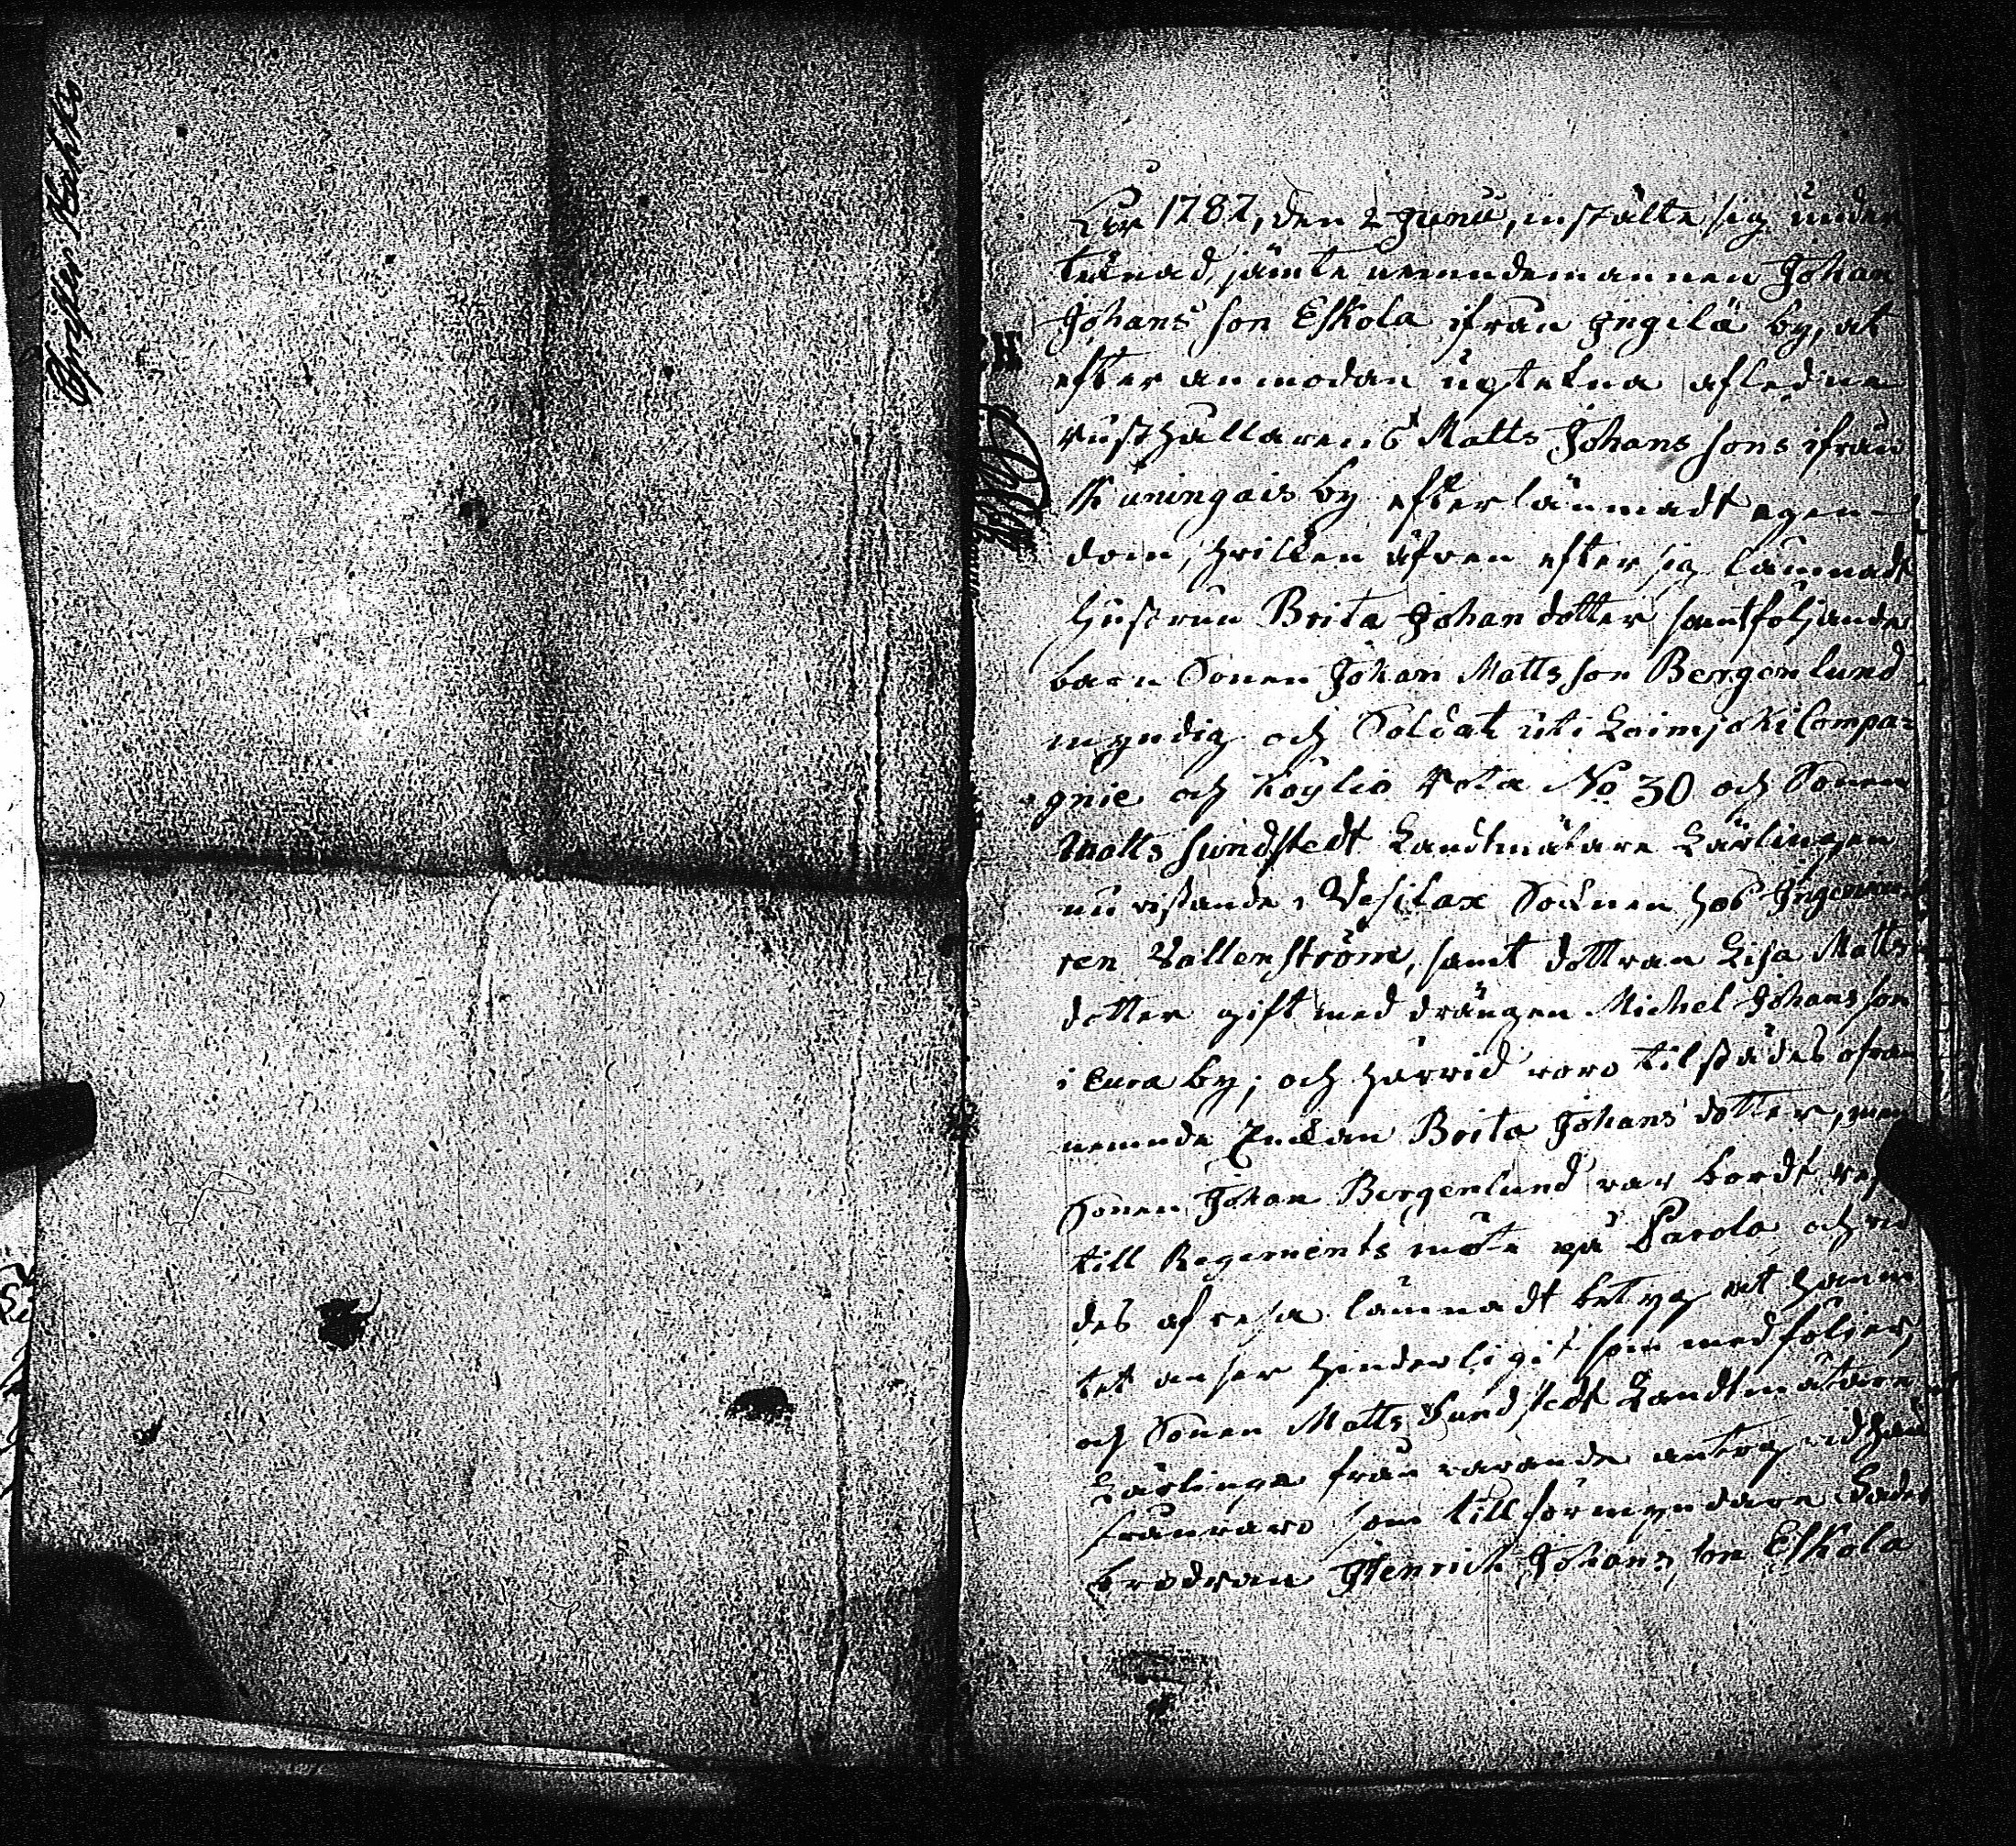 År 1787, den 2 Junii, instälte sig under
teknad, jämte nemndemannen Johan
Johans son Eskola ifrån Ingilä by, at
efter anmodan uptekna afledne
rusthållarens Matts Johans sons ifrån
Kuningais by efterlämnadt egen-
dom, hvilken äfven efter sig lämnadt
hustrun Brita Johan dotter samt följande
barn Sonen Johan Matts son Bergenlund
myndig och Soldat uti Loimjoki Compa=
gnie och Köylio Rota No 30 och Sonen
Matts Sundstedt Landtmätare Lärlingen
nu vistande i Vesilax Socknen hos Ingenieu
ren Vallenström, samt dottran Lisa Matts
dotter gift med drängen Michel Johans son
i Eura by; och härvid voro tilstädes ofvan
nemnde Enkan Brita Johans dotter, men
Sonen Johan Bergenlund var bordt
till Regements möte på Parola och
des afresa lämnadt betyg at
tet anser hinderligit som medfölier,
och Sonen Matts Sundstedt Landtmätare
Lärlinge från varande antog vid hans
frånvaro som till förmyndare
brodran Henrich Johans son Eskola